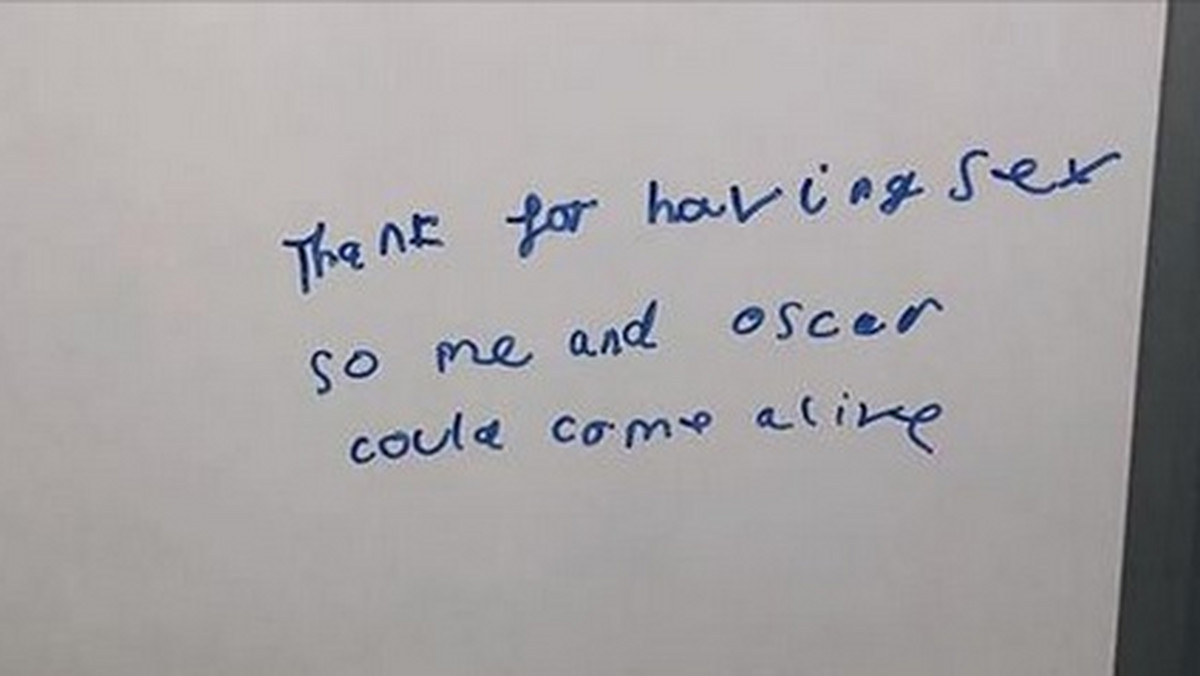 Thank for having sex
so me and oscar
could come alive